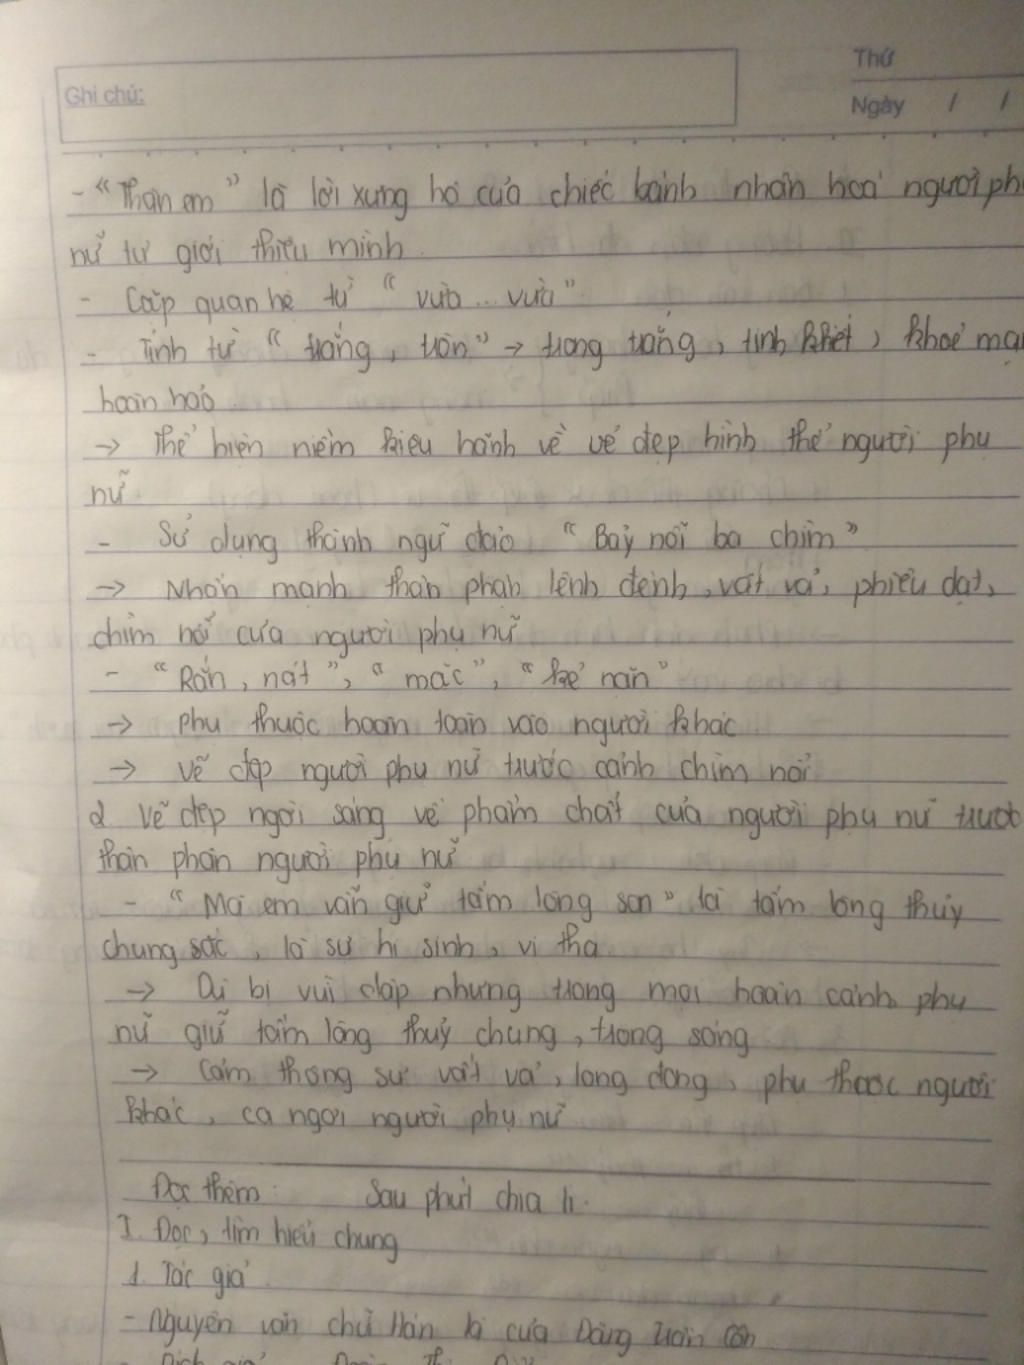 Ghi chú:
Thứ
Ngày / /
- "Thân em" là lời xưng hô của chiếc bánh nhân hoá người ph
nữ tự giới thiệu mình.
- Cặp quan hệ từ "vừa... vừa".
- Tính từ "trắng, tròn" → trong trắng, tinh khiết, khoẻ mạ
hoàn hảo
→ Thể hiện niềm kiêu hãnh về vẻ đẹp hình thể người phụ
nữ.
- Sử dụng thành ngữ đảo "Bảy nổi ba chìm"
→ Nhấn mạnh thân phận lênh đênh, vất vả, phiêu dạt,
chìm nổi của người phụ nữ
- "Rắn, nát", "mặc", "kẻ nặn"
→ phụ thuộc hoàn toàn vào người khác
→ vẽ đẹp người phụ nữ trước cảnh chìm nổi
2 Vẽ đẹp ngời sáng về phẩm chất của người phụ nữ trước
thân phận người phụ nữ
- "Mà em vẫn giữ tấm lòng son" là tấm lòng thủy
chung sắc, là sự hi sinh, vị tha
→ Dù bị vùi dập nhưng trong mọi hoàn cảnh phụ
nữ giữ tấm lòng thuỷ chung, trong sáng
→ Cảm thông sự vất vả, long đong, phụ thuộc người
khác, ca ngợi người phụ nữ
Đọc thêm: Sau phút chia li.
I. Đọc, tìm hiểu chung
1. Tác giả
- Nguyên văn chữ Hán là của Đặng Trần Côn
- Dịch giả: Đoàn Thị